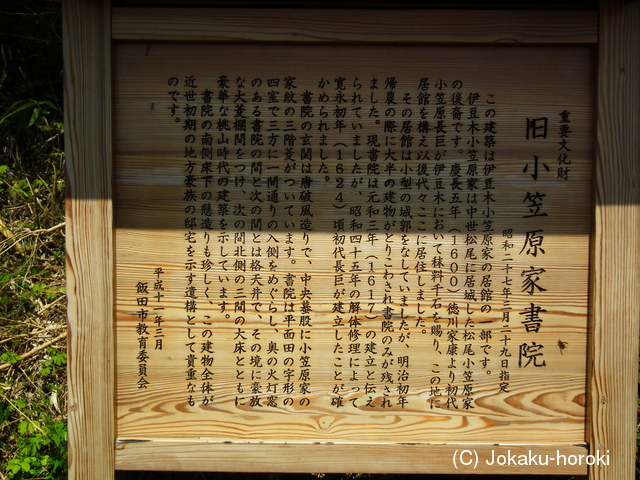 重要文化財
旧小笠原家書院
昭和二十七年三月二十九日指定
この建築は伊豆木小笠原家の居館の一部です。
伊豆木小笠原家は中世松尾に居城した松尾小笠原家
の後裔です。慶長五年（1600）徳川家康より初代
小笠原長巨が伊豆木において秣料千石を賜り、この地に
居館を構え以後代々ここに居住しました。
その居館は小型の城郭をなしていましたが、明治初年
帰農の際に大半の建物がとりこわされ書院のみが残され
ました。現書院は元和三年（1617）の建立と伝え
られていましたが、昭和四十五年の解体修理によって
寛永初年（1624）頃初代長巨が建立したことが確
かめられました。
書院の玄関は唐破風造りで、中央蟇股に小笠原家の
家紋の三階菱がついています。書院は平面田の字形の
四室で三方に一間通りの入側をめぐらし、奥の火灯窓
のある書院の間と次の間とは格天井で、その境に豪放
な大菱欄間をつけ、次の間北側の三間の大床とともに
豪華な桃山時代の建築を示しています。
書院の南側床下の懸造りも珍しく、この建物全体が
近世初期の地方豪族の邸宅を示す遺構として貴重なも
のです。
平成十一年三月
飯田市教育委員会
(C) Jokaku-horoki